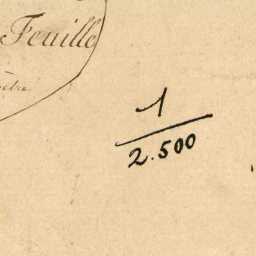 Feuille
1
2.500